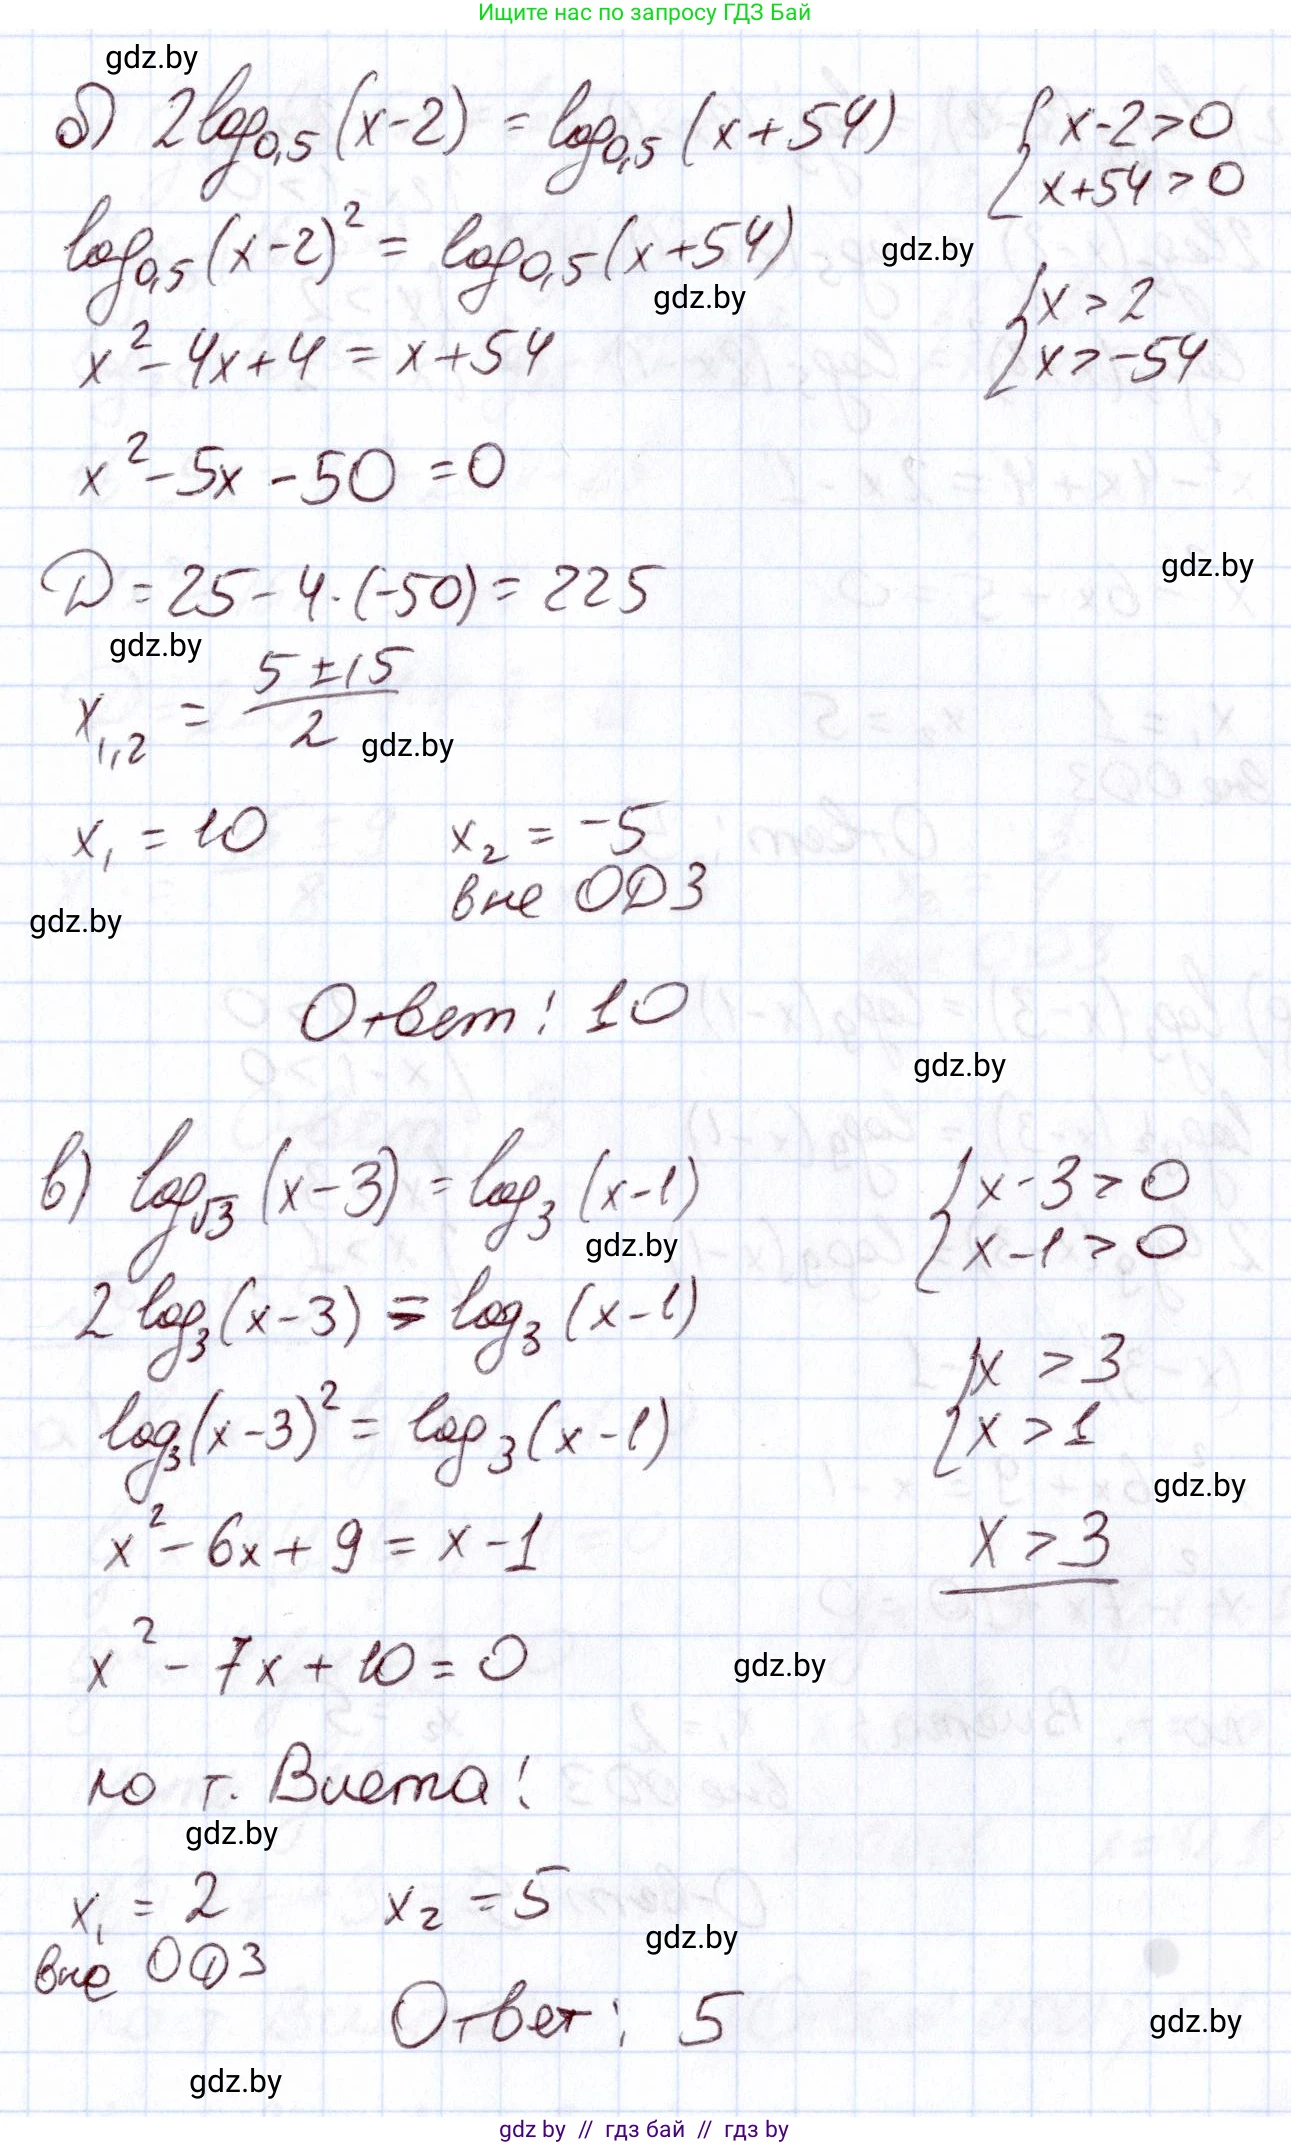 Ищите нас по запросу ГДЗ Бай
gdz.by
б) 2log₀,₅(x-2) = log₀,₅(x+54)
{x-2>0
x+54>0
log₀,₅(x-2)² = log₀,₅(x+54)
gdz.by
gdz.by
{x>2
x>-54
x²-4x+4 = x+54
x²-5x-50=0
gdz.by
D=25-4·(-50)=225
gdz.by
x₁,₂ = (5±15)/2
gdz.by
x₁=10 x₂=-5
вне ОДЗ
gdz.by
Ответ: 10
gdz.by
в) log√3(x-3) = log₃(x-1)
{x-3>0
x-1>0
gdz.by
2log₃(x-3) = log₃(x-1)
{x>3
x>1
log₃(x-3)² = log₃(x-1)
gdz.by
x²-6x+9=x-1
x>3
x²-7x+10=0
gdz.by
по т. Виета:
gdz.by
x₁=2 x₂=5
вне ОДЗ
gdz.by
Ответ: 5
gdz.by
gdz.by
gdz by // гдз бай // гдз by